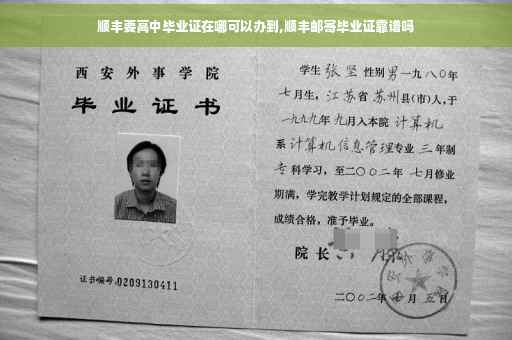 顺丰要高中毕业证在哪可以办到,顺丰邮寄毕业证靠谱吗
西安外事学院
毕业证书
证书编号:0209130411
学生 张坚 性别 男 一九八〇年
七月生, 江苏省 苏州县(市)人,于
一九九九年九月入本院 计算机
系 计算机信息管理专业 三年制
专科学习,至二〇〇二年 七月修业
期满,学完教学计划规定的全部课程,
成绩合格,准予毕业。
院长
二〇〇二年 七月 五日